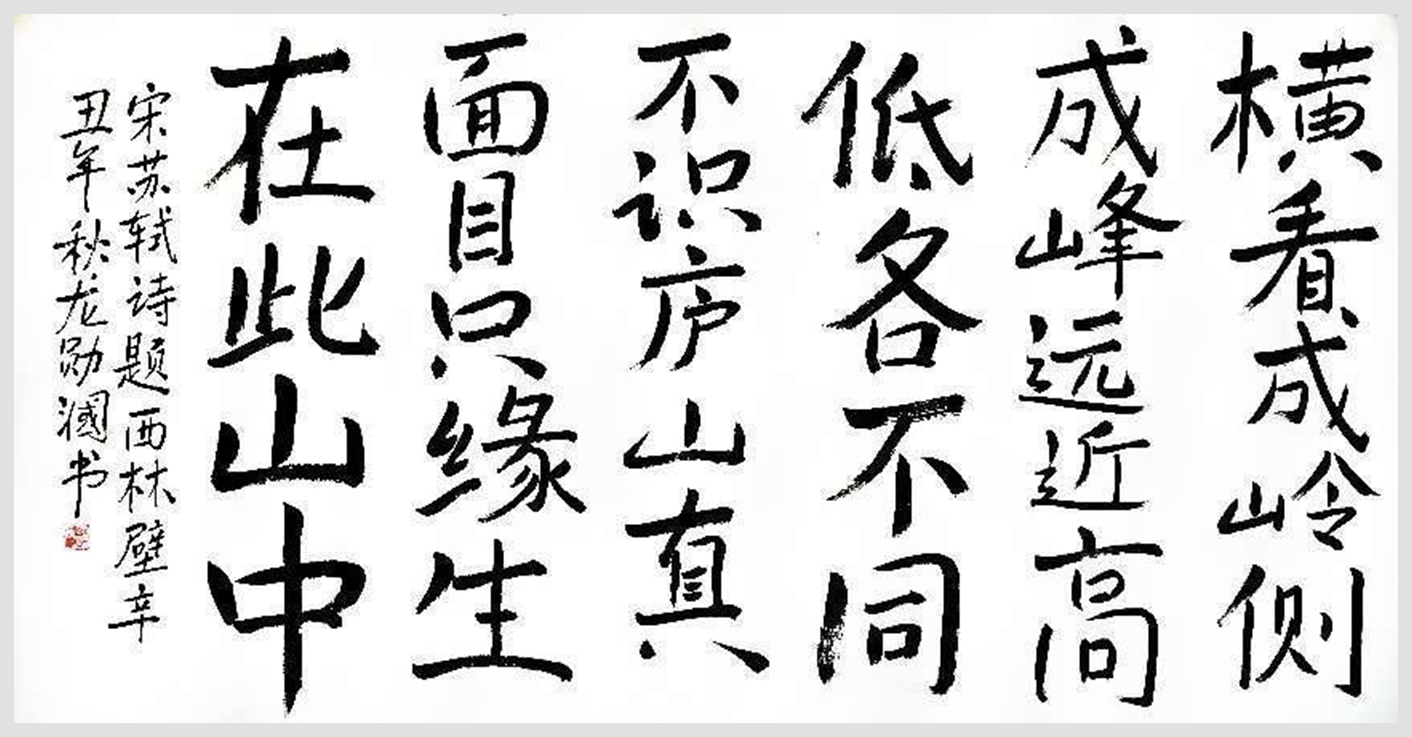 横看成岭侧
成峰远近高
低各不同
不识庐山真
面目只缘生
在此山中
宋苏轼诗题西林壁辛
丑年秋龙勋漍书